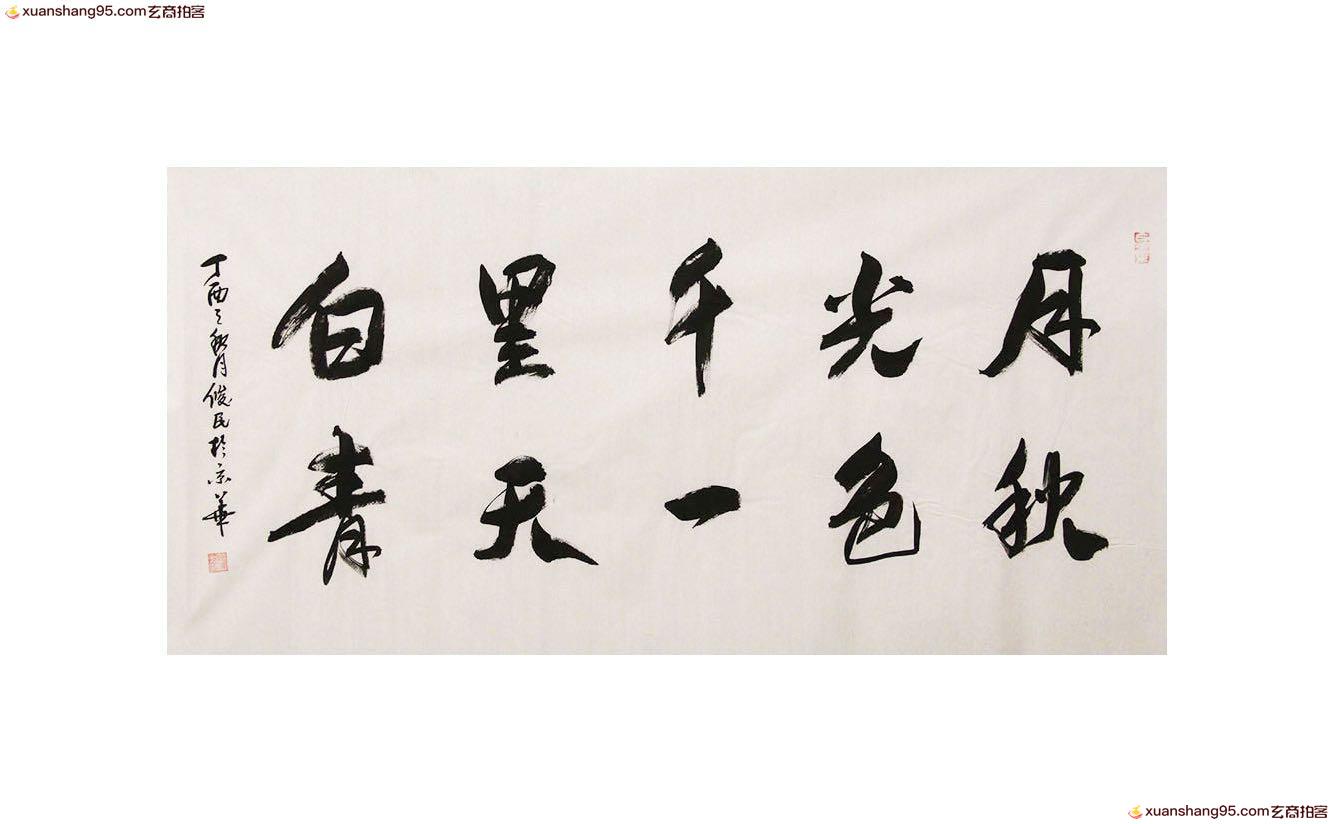 xuanshang95.com玄商拍客
月光千里白
秋色一天青
丁酉之秋月俊民於京華
xuanshang95.com玄商拍客